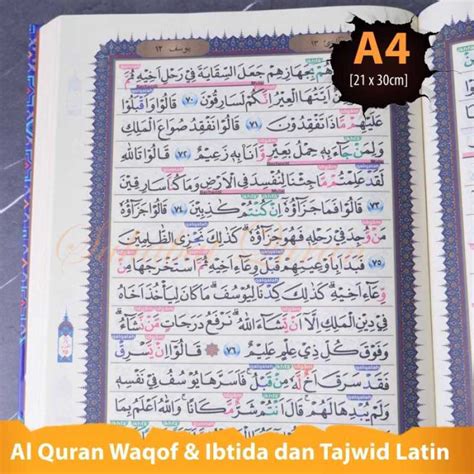 يوسف ١٢
١٣
A4
[21 x 30cm]
بِجَهَازِهِمْ جَعَلَ السِّقَايَةَ فِيْ رَحْلِ اَخِيْهِ ثُمَّ
اَيَّتُهَا الْعِيْرُ اِنَّكُمْ لَسَارِقُوْنَ ﴿٧٠﴾ قَالُوْا وَاَقْبَلُوْا
عَلَيْهِمْ مَّاذَا تَفْقِدُوْنَ ﴿٧١﴾ قَالُوْا نَفْقِدُ صُوَاعَ الْمَلِكِ
وَلِمَنْ جَاۤءَ بِهٖ حِمْلُ بَعِيْرٍ وَّاَنَا۠ بِهٖ زَعِيْمٌ ﴿٧٢﴾ قَالُوْا تَاللّٰهِ
لَقَدْ عَلِمْتُمْ مَّا جِئْنَا لِنُفْسِدَ فِى الْاَرْضِ وَمَا كُنَّا سَارِقِيْنَ
﴿٧٣﴾ قَالُوْا فَمَا جَزَاۤؤُهٗٓ اِنْ كُنْتُمْ كٰذِبِيْنَ ﴿٧٤﴾ قَالُوْا جَزَاۤؤُهٗ
مَنْ وُّجِدَ فِيْ رَحْلِهٖ فَهُوَ جَزَاۤؤُهٗ ۗ كَذٰلِكَ نَجْزِى الظّٰلِمِيْنَ
﴿٧٥﴾ فَبَدَاَ بِاَوْعِيَتِهِمْ قَبْلَ وِعَاۤءِ اَخِيْهِ ثُمَّ اسْتَخْرَجَهَا مِنْ
وِّعَاۤءِ اَخِيْهِ ۗ كَذٰلِكَ كِدْنَا لِيُوْسُفَ ۗ مَا كَانَ لِيَأْخُذَ اَخَاهُ
فِيْ دِيْنِ الْمَلِكِ اِلَّآ اَنْ يَّشَاۤءَ اللّٰهُ ۗ نَرْفَعُ دَرَجَاتٍ مَّنْ نَّشَاۤءُ ۗ
وَفَوْقَ كُلِّ ذِيْ عِلْمٍ عَلِيْمٌ ﴿٧٦﴾ قَالُوْٓا اِنْ يَّسْرِقْ
فَقَدْ سَرَقَ اَخٌ لَّهٗ مِنْ قَبْلُ ۚ فَاَسَرَّهَا يُوْسُفُ فِيْ نَفْسِهٖ
وَلَمْ يُبْدِهَا لَهُمْ ۚ قَالَ اَنْتُمْ شَرٌّ مَّكَانًا ۚ وَاللّٰهُ اَعْلَمُ بِمَا
Al Quran Waqof & Ibtida dan Tajwid Latin